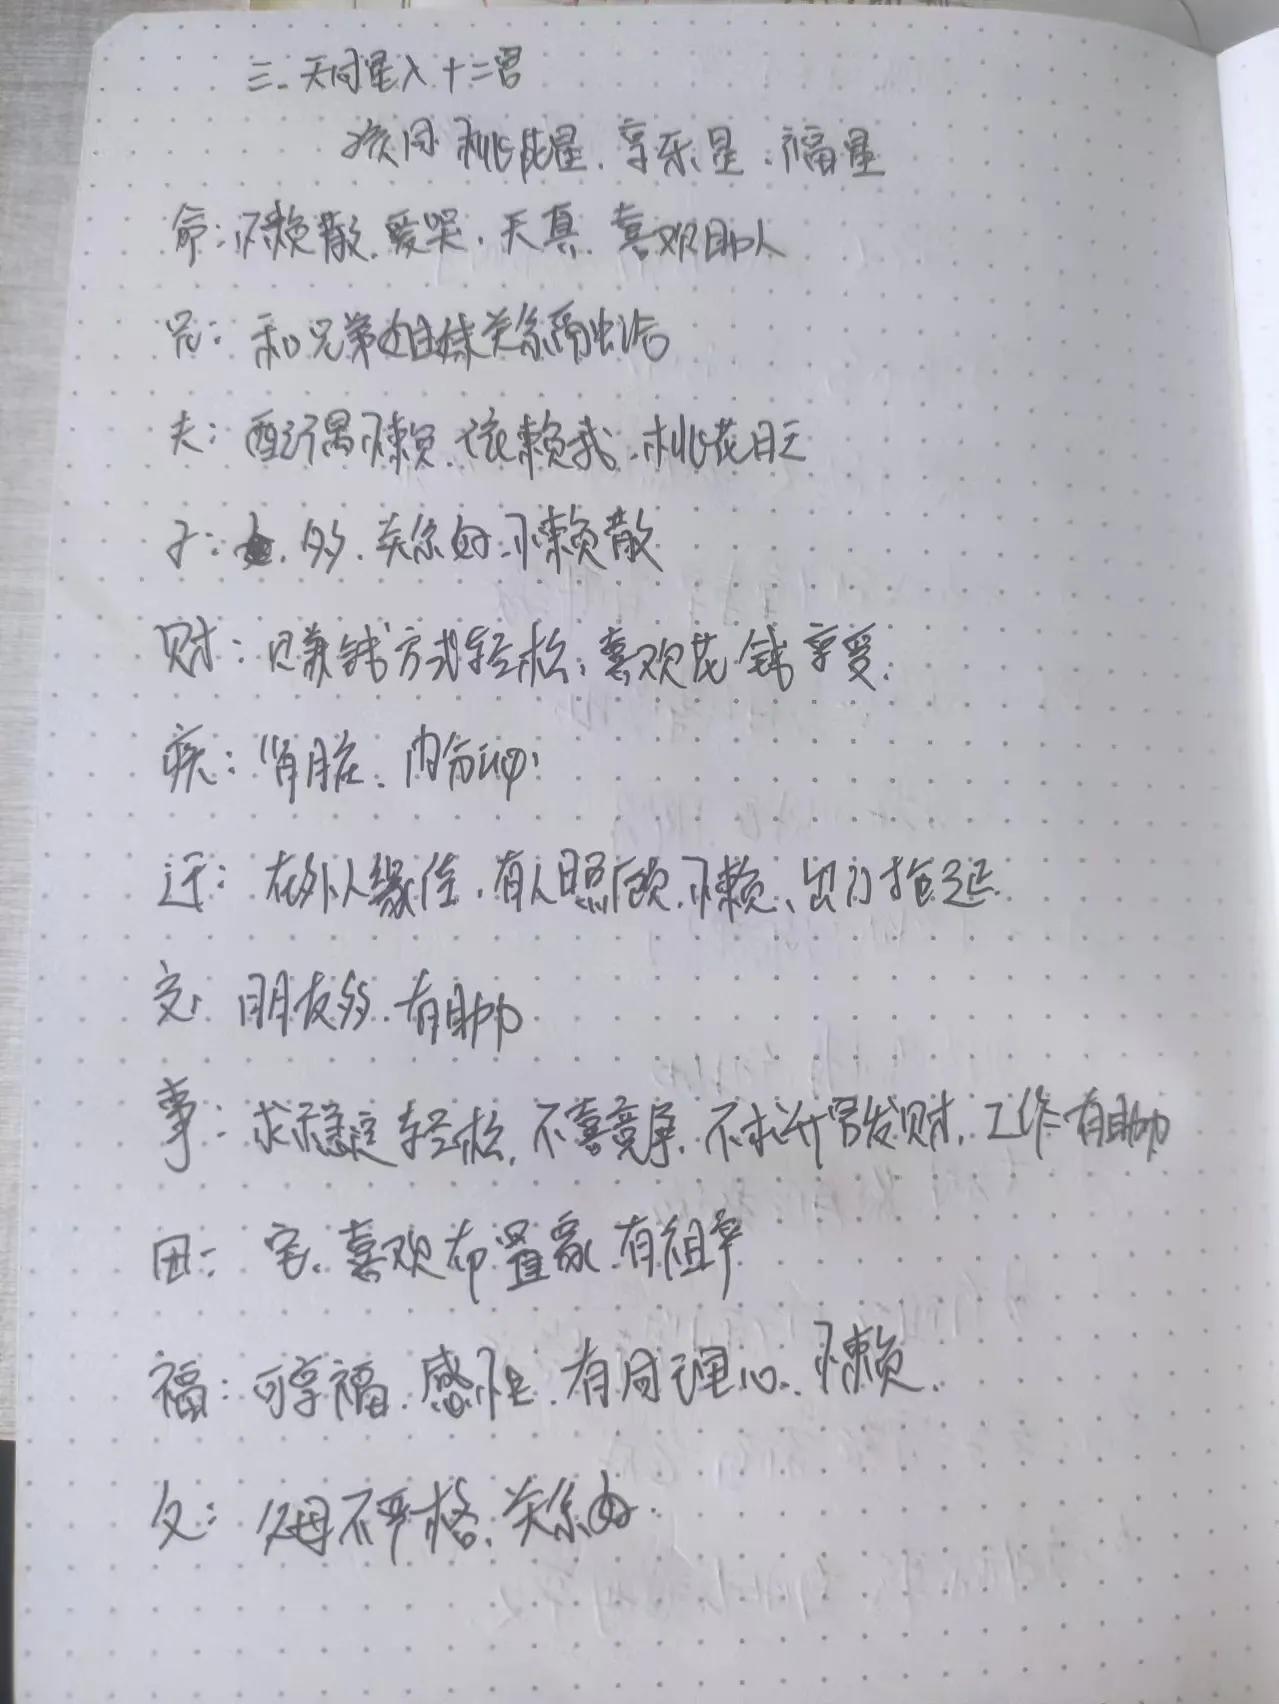 三、天同星入十二宫
孩同 桃花星、享乐星、福星
命:懒散、爱哭、天真、喜欢助人
兄:和兄弟姐妹关系融洽
夫:配偶懒、依赖我、桃花旺
子:多、关系好、懒散
财:赚钱方式轻松,喜欢花钱享受.
疾:肾脏、内分泌
迁:在外人缘佳、有人照顾、懒、出门拖延
交:朋友多、有助力
事:求稳定轻松,不喜竞争,不求升官发财,工作有助力
田:宅、喜欢布置家、有祖
福:可享福、感性、有同理心、懒.
父:父母不严格、关系好